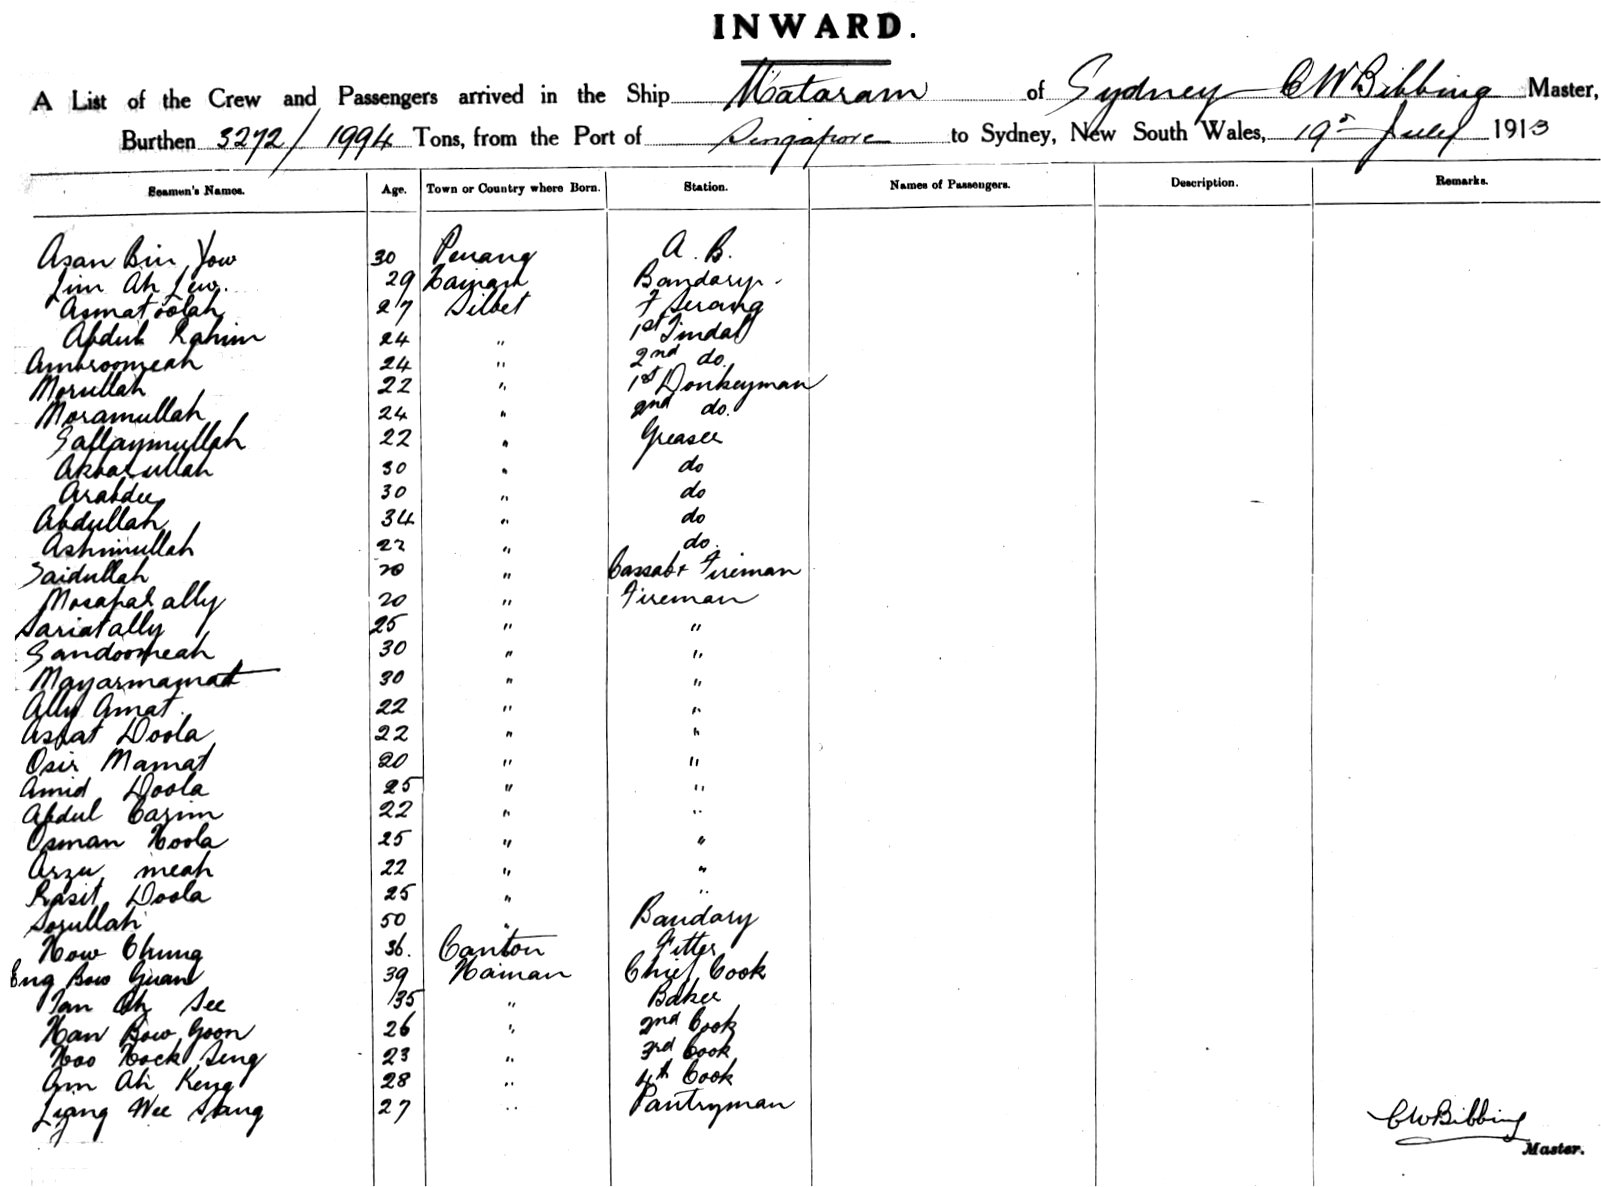 INWARD.
A List of the Crew and Passengers arrived in the Ship Mataram of Sydney C W Bibbing Master,
Burthen 3272/1994 Tons, from the Port of Singapore to Sydney, New South Wales, 19th July 1913
Seamen's Names. Age. Town or Country where Born. Station. Names of Passengers. Description. Remarks.
Asan Bin Yow 30 Penang A. B.
Lim Ah Lew. 29 Hainan Bandary
Asmatoolah 27 Silhet F Serang
Abdul Rahim 24 " 1st Tindal
Ambroomeah 24 " 2nd do.
Morullah 22 " 1st Donkeyman
Moramullah 24 " 2nd do.
Saffaymullah 22 " Greaser
Akbarullah 30 " do
Arabdee 30 " do
Abdullah 34 " do
Ashimullah 22 " do.
Saidullah 20 " Cassab & Fireman
Mosapal ally 20 " Fireman
Sariatally 25 " "
Sandoomeah 30 " "
Mayarmamat 30 " "
Ally Amat 22 " "
Asfat Doola 22 " "
Osir Mamat 20 " "
Amid Doola 25 " "
Abdul Cazim 22 " "
Osman Hoola 25 " "
Arzu meah 22 " "
Rasit Doola 25 " "
Sorullah 50 " Bandary
How Chung 36. Canton Fitter
Eng Bow Guan 39 Hainan Chief Cook
Tan Ah See 35 " Baker
Han Bow Goon 26 " 2nd Cook
Hoo Hock Seng 23 " 3rd Cook
Ah Keng 28 " 4th Cook
Liang Wee Slang 27 " Pantryman
C W Bibbing
Master.